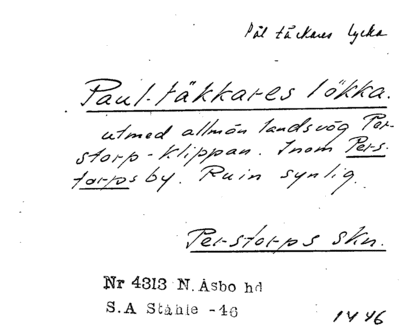 Pål täckares lycka
Paul-täkkares lökka.
utmed allmän landsväg Per-
storp - Klippan. Inom Pers-
torps by. Ruin synlig.
Perstorps skn.
Nr 4313 N. Åsbo hd
S.A Ståhle -46
1446